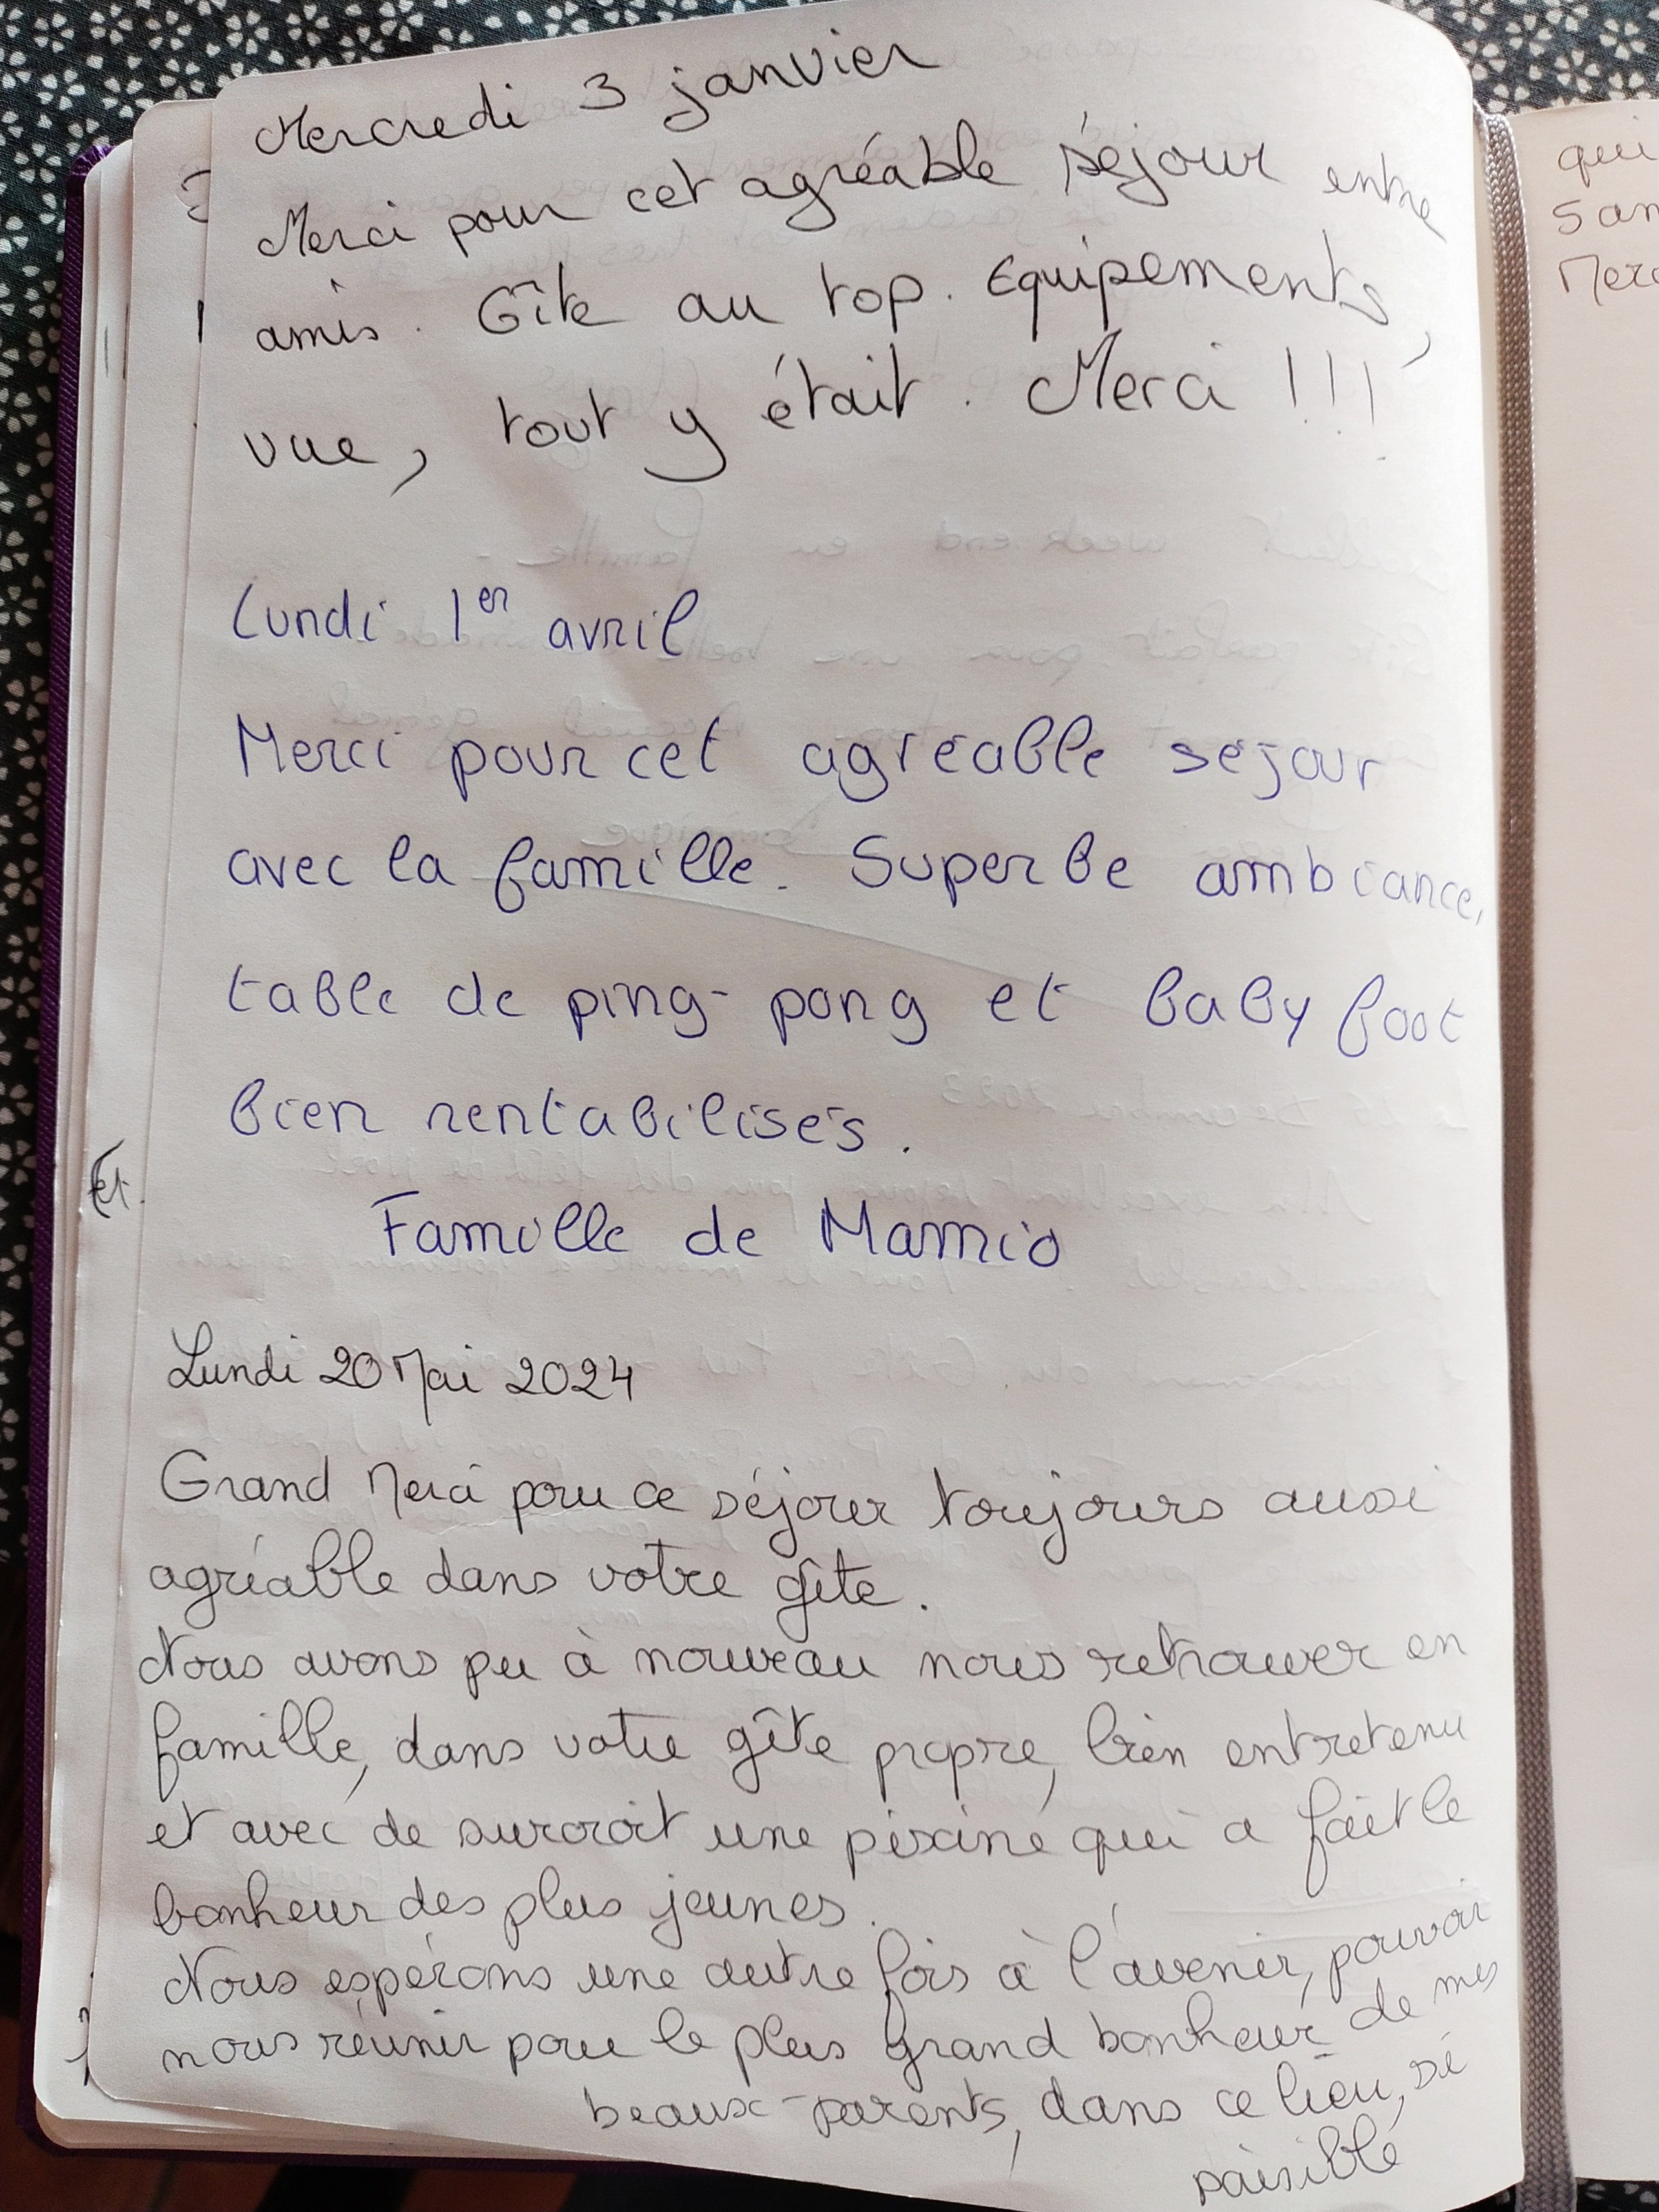 Mercredi 3 janvier
Merci pour cet agréable séjour entre
amis. Gîte au top. Equipements,
vue, tout y était. Merci !!!
Lundi 1er avril
Merci pour cet agréable séjour
avec la famille. Superbe ambiance,
table de ping-pong et baby foot
bien rentabilisés.
Famille de Mamio
Lundi 20 Mai 2024
Grand Merci pour ce séjour toujours aussi
agréable dans votre gîte.
Nous avons pu à nouveau nous retrouver en
famille, dans votre gîte propre, bien entretenu
et avec de surcroit une piscine qui a fait le
bonheur des plus jeunes.
Nous espérons une autre fois à l'avenir, pouvoir
nous réunir pour le plus grand bonheur de mes
beaux-parents, dans ce lieu, si
paisible
Et
qui
San
Merc